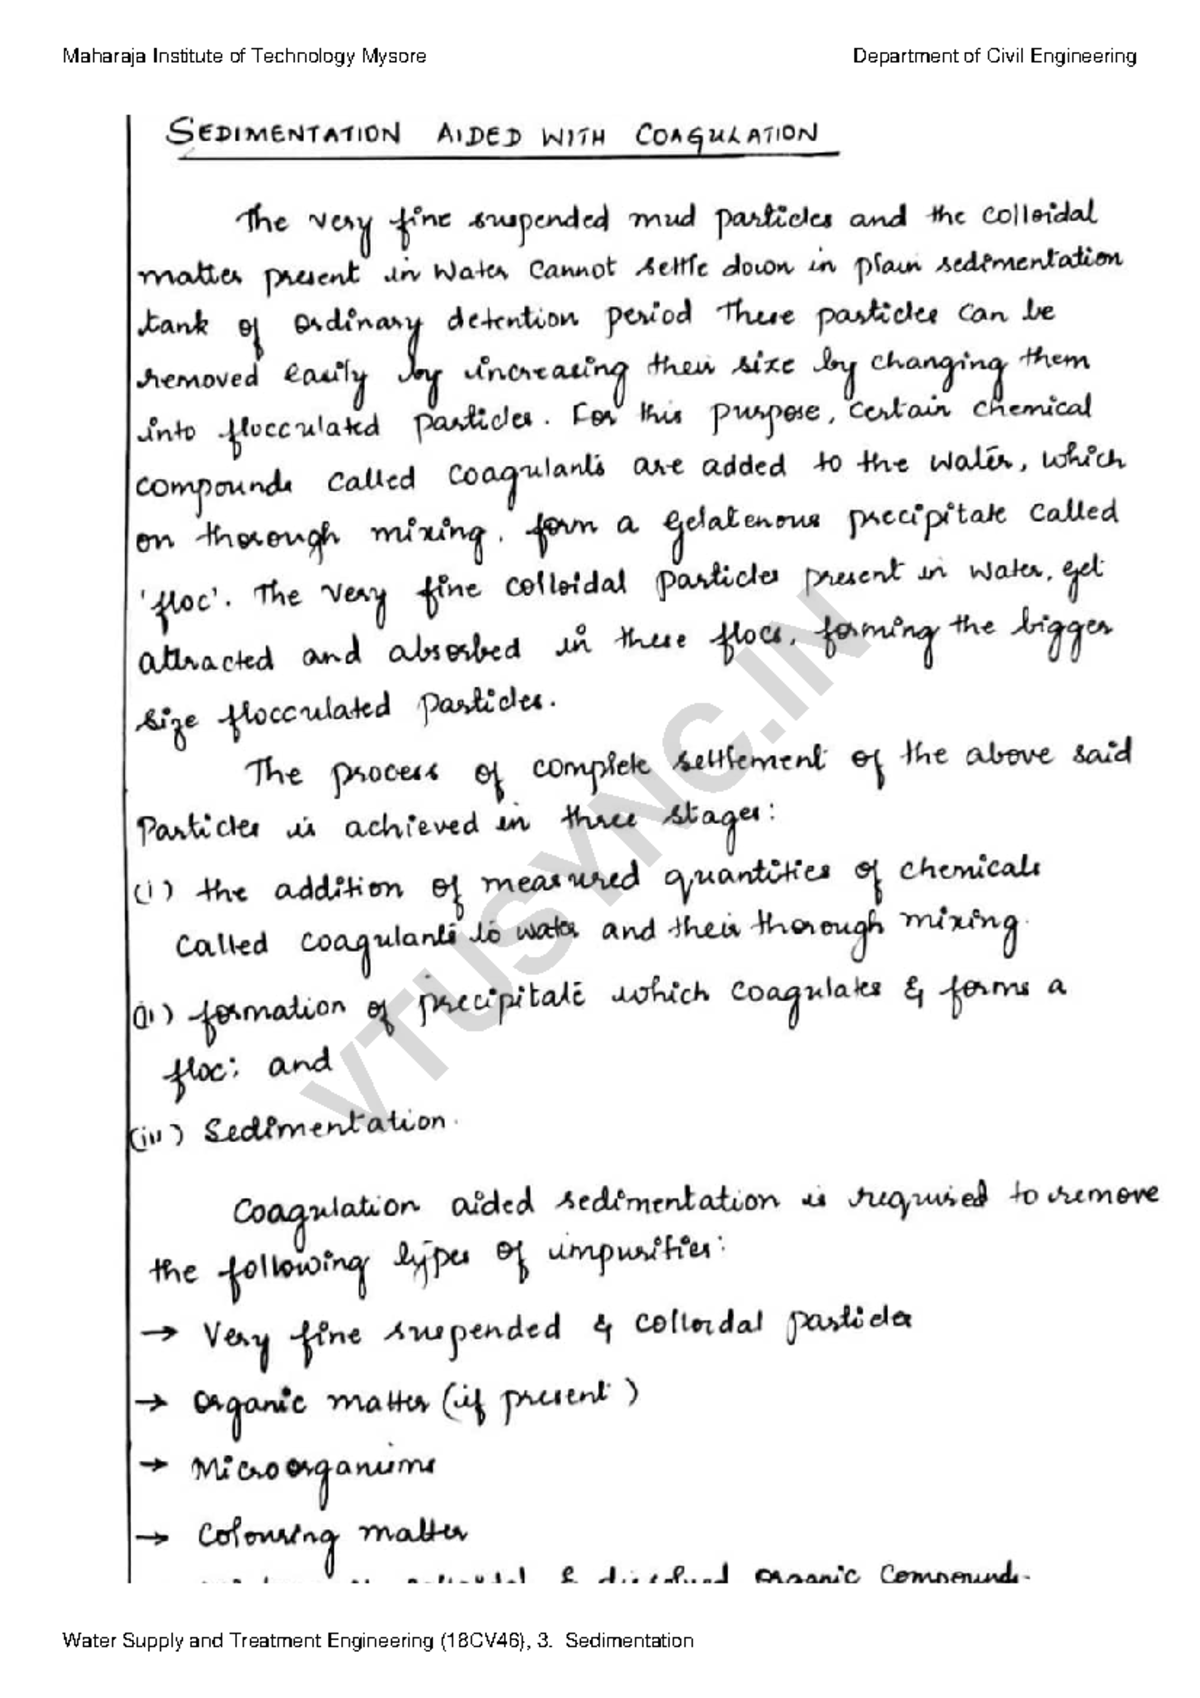 Maharaja Institute of Technology Mysore Department of Civil Engineering
SEDIMENTATION AIDED WITH COAGULATION
The very fine suspended mud particles and the colloidal
matter present in water cannot settle down in plain sedimentation
tank of ordinary detention period These particles can be
removed easily by increasing their size by changing them
into flocculated particles. For this purpose, certain chemical
compounds called coagulants are added to the water, which
on thorough mixing, form a gelatenous precipitate called
'floc'. The very fine colloidal particles present in water, get
attracted and absorbed in these flocs, forming the bigger
size flocculated particles.
The process of complete settlement of the above said
Particles is achieved in three stages:
(i) the addition of measured quantities of chemicals
called coagulants to water and their thorough mixing.
(ii) formation of precipitate which coagulates & forms a
floc; and
(iii) Sedimentation.
Coagulation aided sedimentation is required to remove
the following types of impurities:
→ Very fine suspended & colloidal particles
→ Organic matter (if present)
→ Microorganisms
→ Colouring matter
& dissolved organic compounds.
VTUSYNC.IN
Water Supply and Treatment Engineering (18CV46), 3. Sedimentation